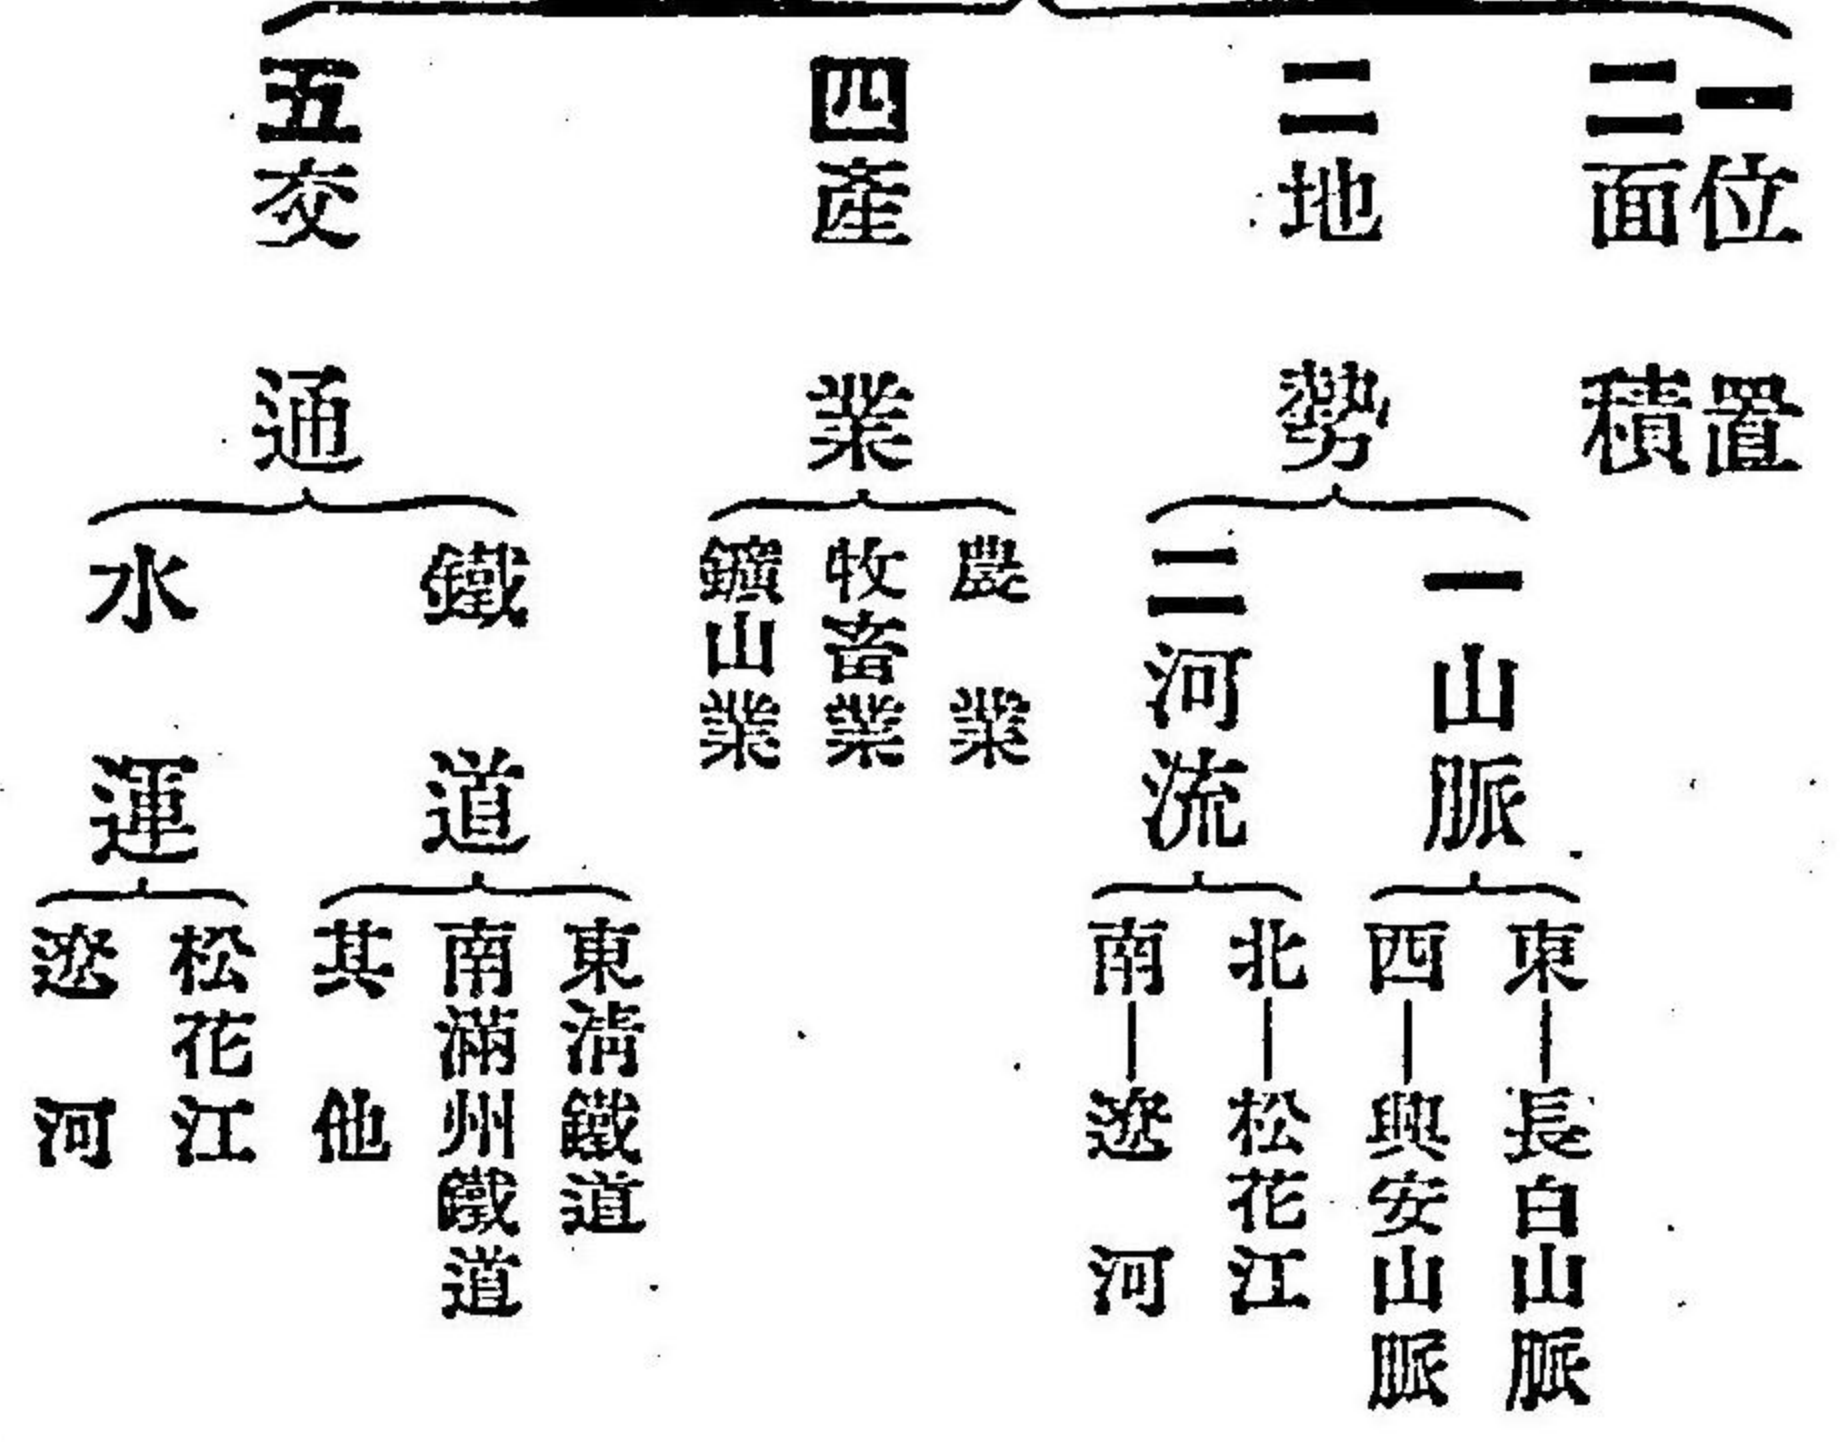 一位置
二面積
二地勢
一山脈
東―長白山脈
西―興安山脈
二河流
北―松花江
南―遼河
四產業
農業
牧畜業
鑛山業
五交通
鐵道
東淸鐵道
南滿州鐵道
其他
水運
松花江
遼河